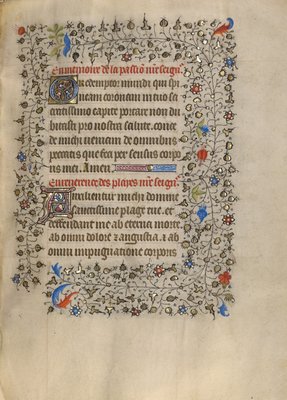 En memoire de la passio nre seign
O redemptor mundi qui spi
neam coronam in tuo sa
cratissimo capite portare non du
bitasti pro nostra salute. cone
de michi veniam de omnibus
peccatis que feci per sensus corpo
ris mei. Amen
En reverence des playes nre seign
Auxilientur michi domine
sanctissime plage tue. et
deffendant me ab eterna morte.
ab omni dolore & angustia. & ab
omni impugnatione corporis